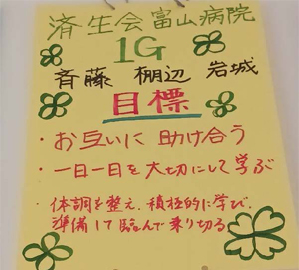 済生会富山病院
1G
斉藤 棚辺 岩城
目標
・お互いに助け合う
・一日一日を大切にして学ぶ
・体調を整え、積極的に学び、
準備して臨んで乗り切る